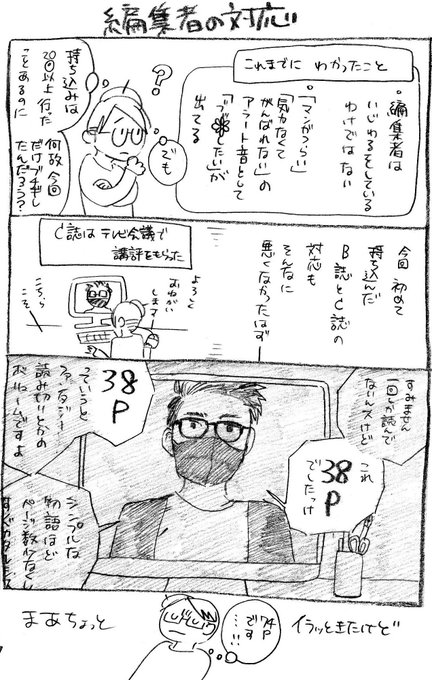 編集者の対応
これまでに わかったこと
・編集者は
いじわるをしている
わけではない
・「マンガつらい」
「気力なくて
がんばれない」の
アラート音として
「ブッ したい」が
出てる
?
でも
持ち込みは
20回以上 行った
ことあるのに
何故 今回
だけブチギレ
たんだろう?
今回 初めて
持ち込んだ
B誌とC誌の
対応も
そんなに
悪くなかったはず
C誌はテレビ会議で
講評をもらった
よろしく
おねがい
します
こちら
こそ
すみません
一回しか読んで
ないんスけど
これ
38
P
でしたっけ
38
P
っていうと
ファンタジー
読み切りとかの
ボリュームですよ
シンプルな
物語ほど
ページ数少なく
イラッときたけど
74P
です
…!!
まあちょっと